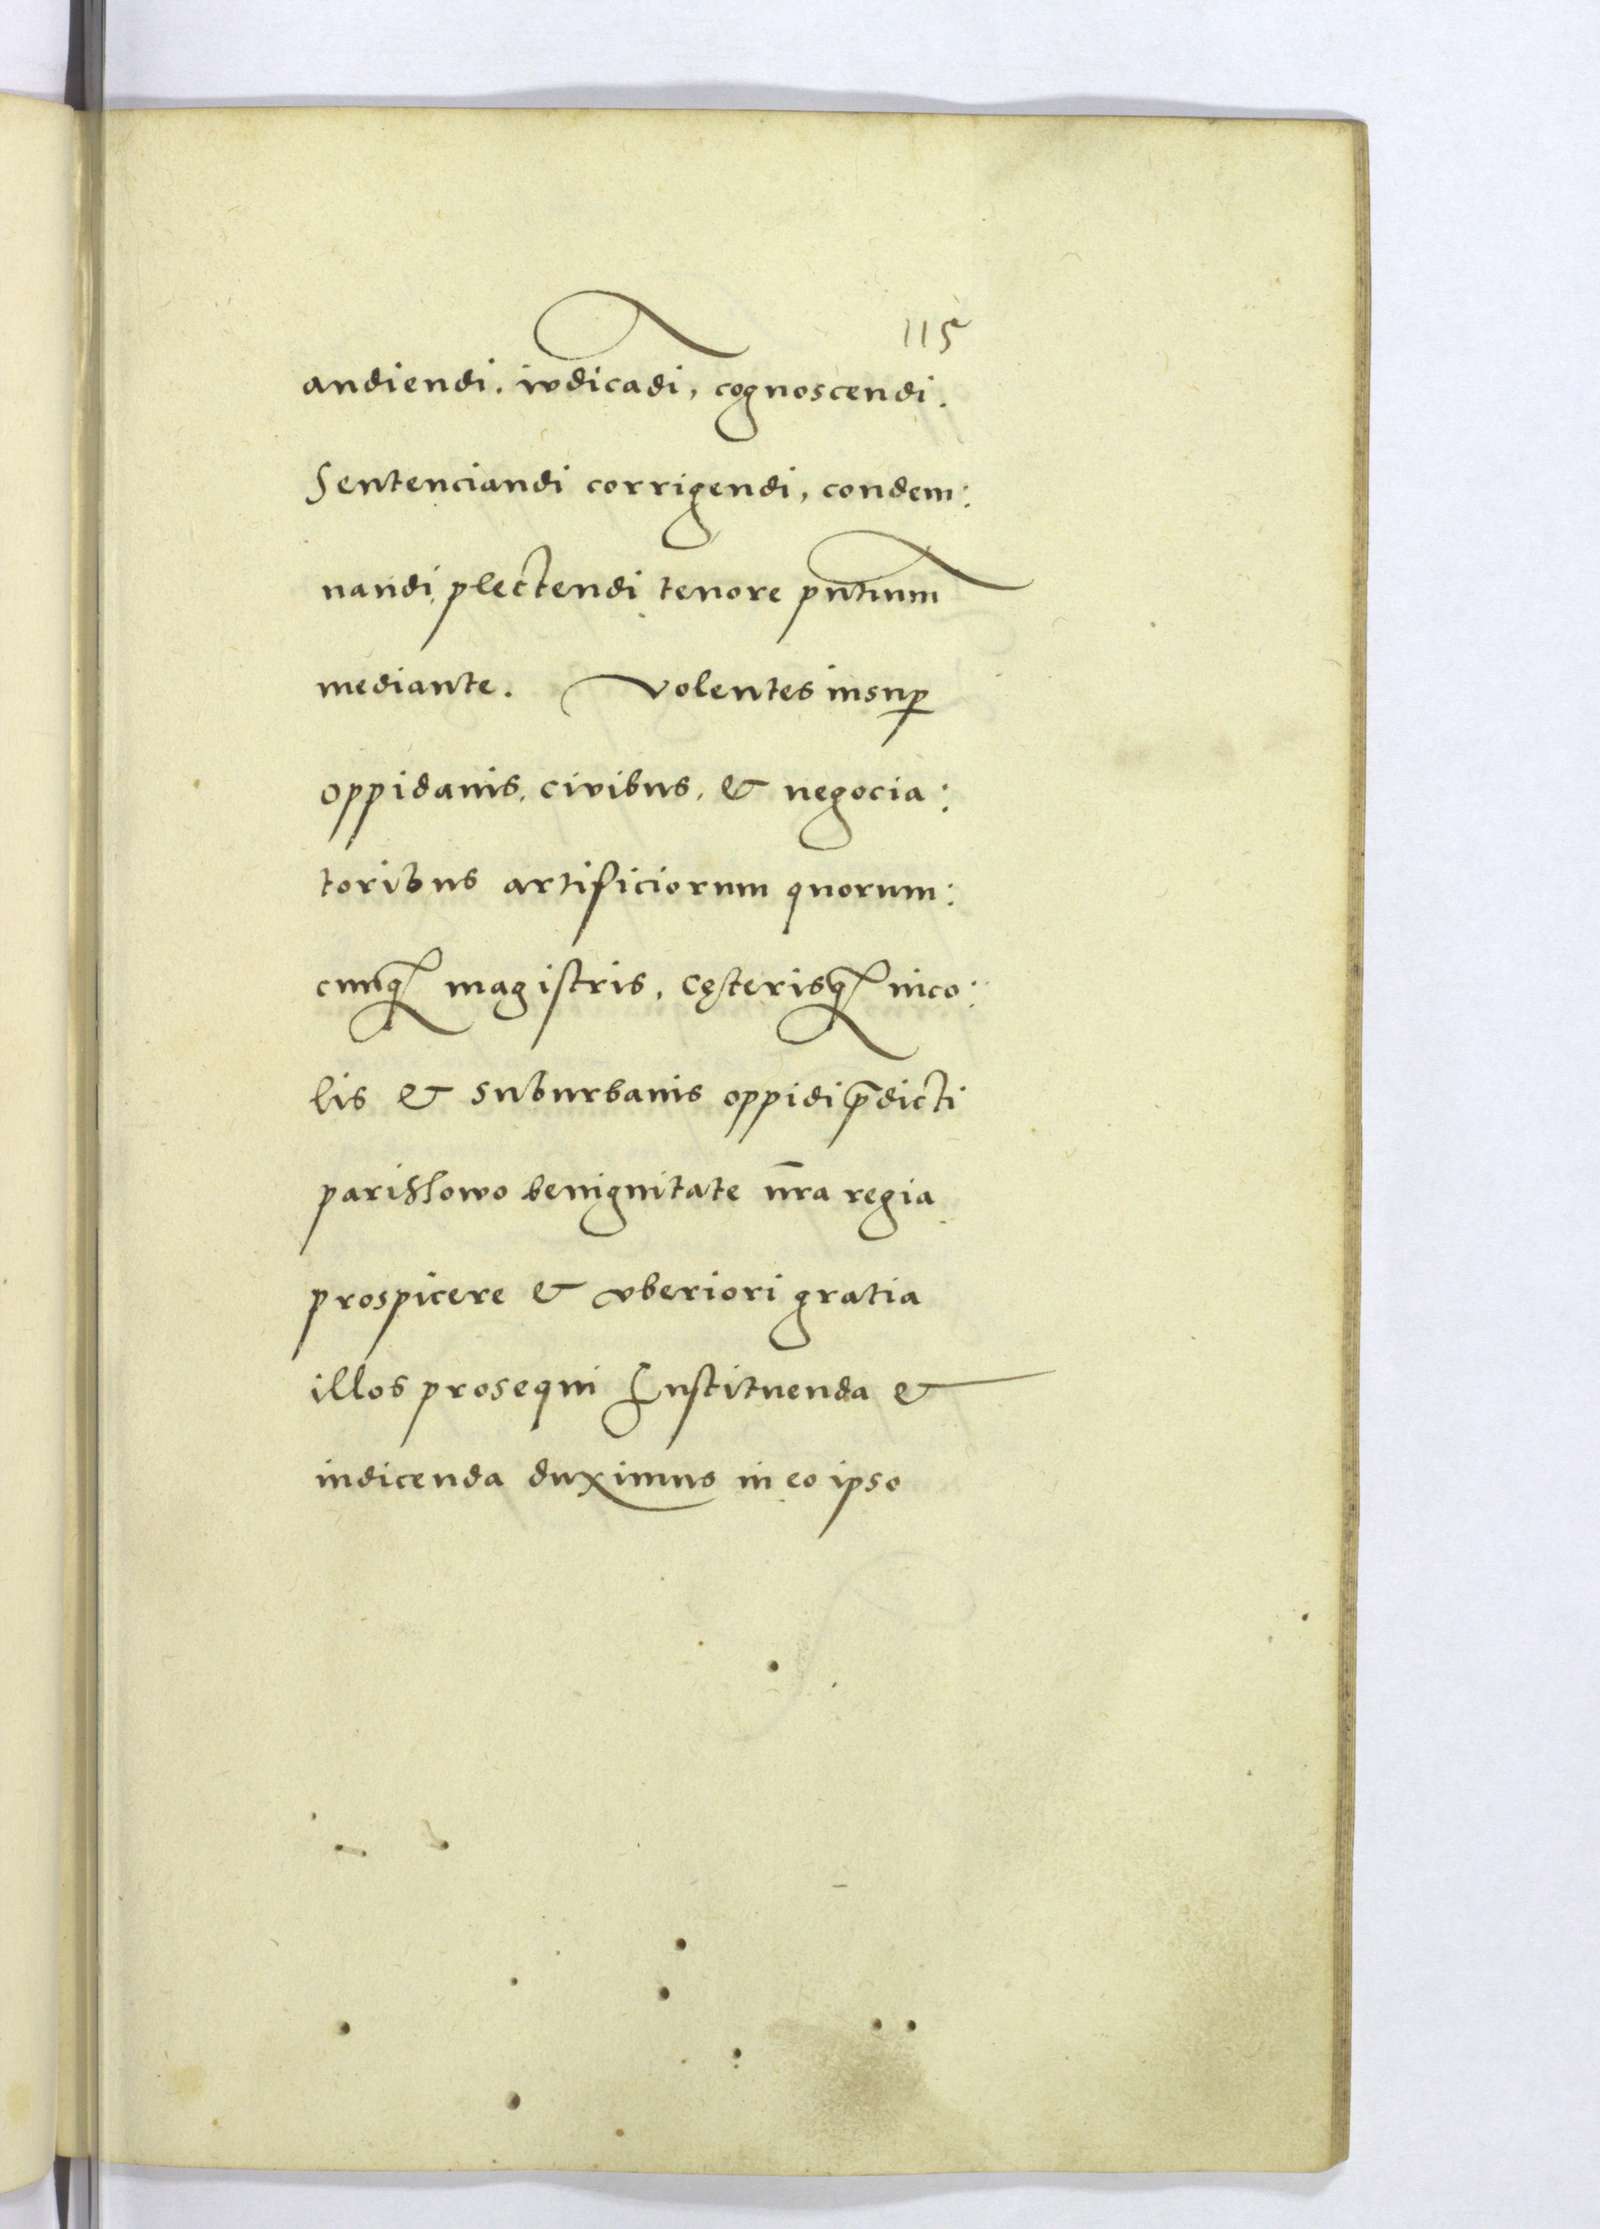 115
audiendi. iudicādi, cognoscendi.
Sentenciandi corrigendi, condem:
nandi, plectendi tenore pn̄tium
mediante. Volentes insuꝑ
oppidanis, civibus, & negocia:
toribus artificiorum quorum:
cunqꝫ magistris, cęterisqꝫ inco:
lis & suburbanis oppidi p̄dicti
parisſowo benignitate nr̄a regia
prospicere & vberiori gratia
illos prosequi Instituenda &
indicenda duximus in eo ipso